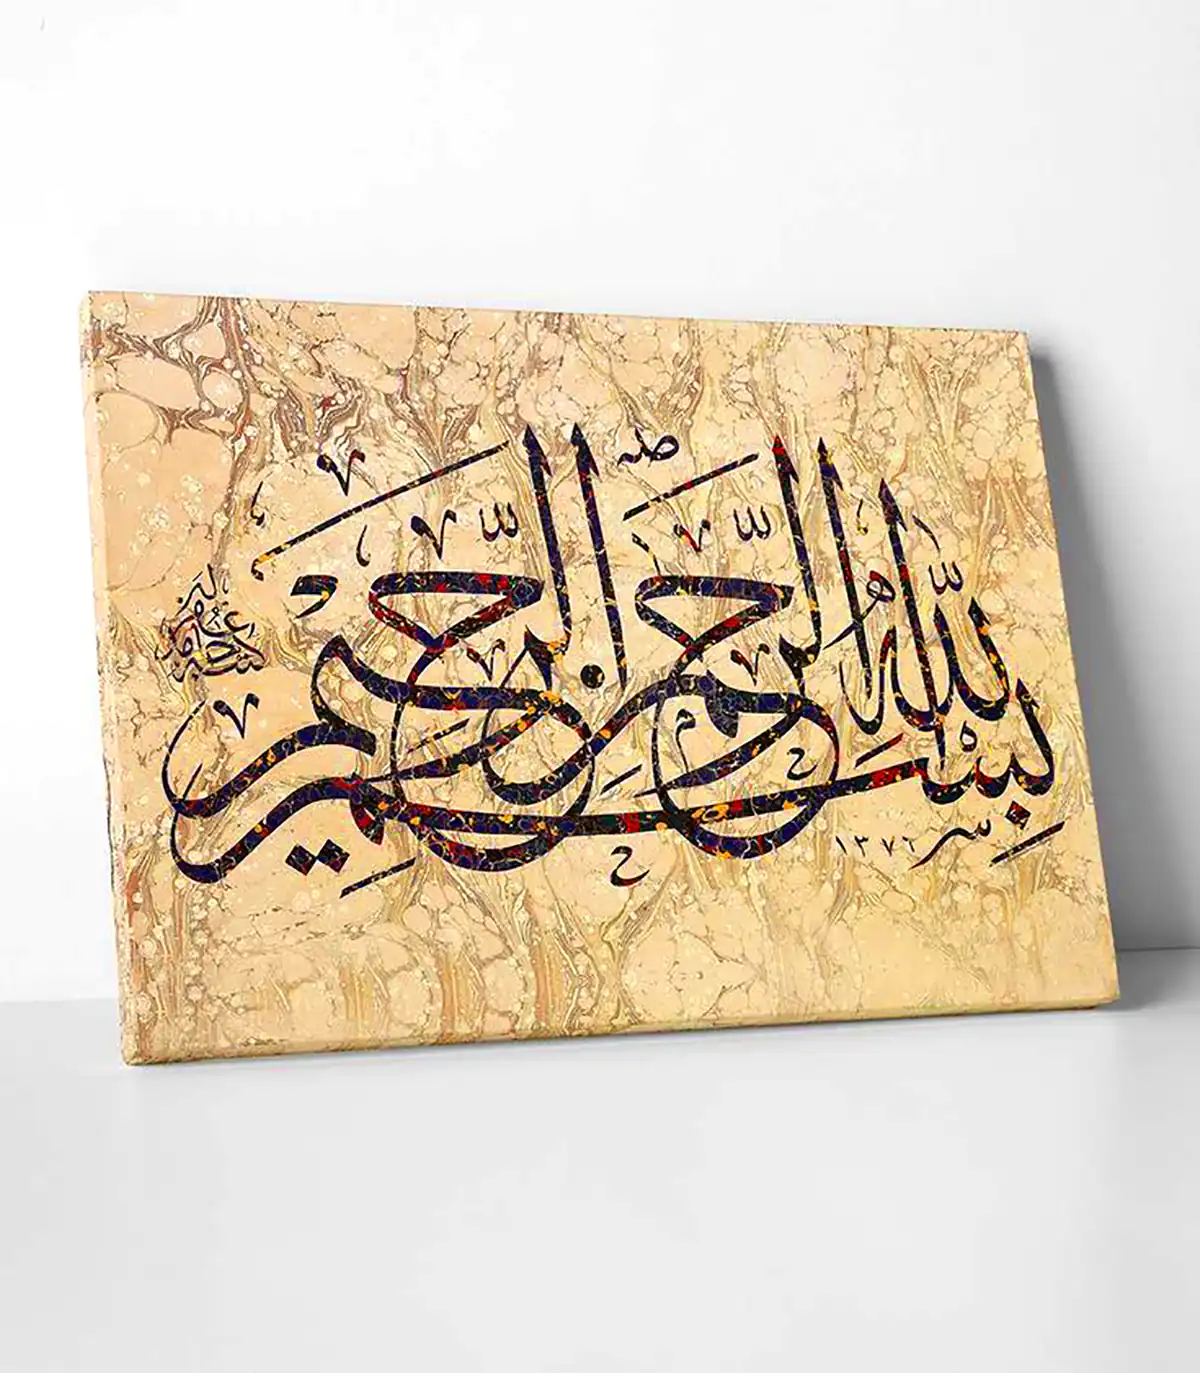 بِسْمِ اللّٰهِ الرَّحْمٰنِ الرَّحِيمِ
١٣٧٦